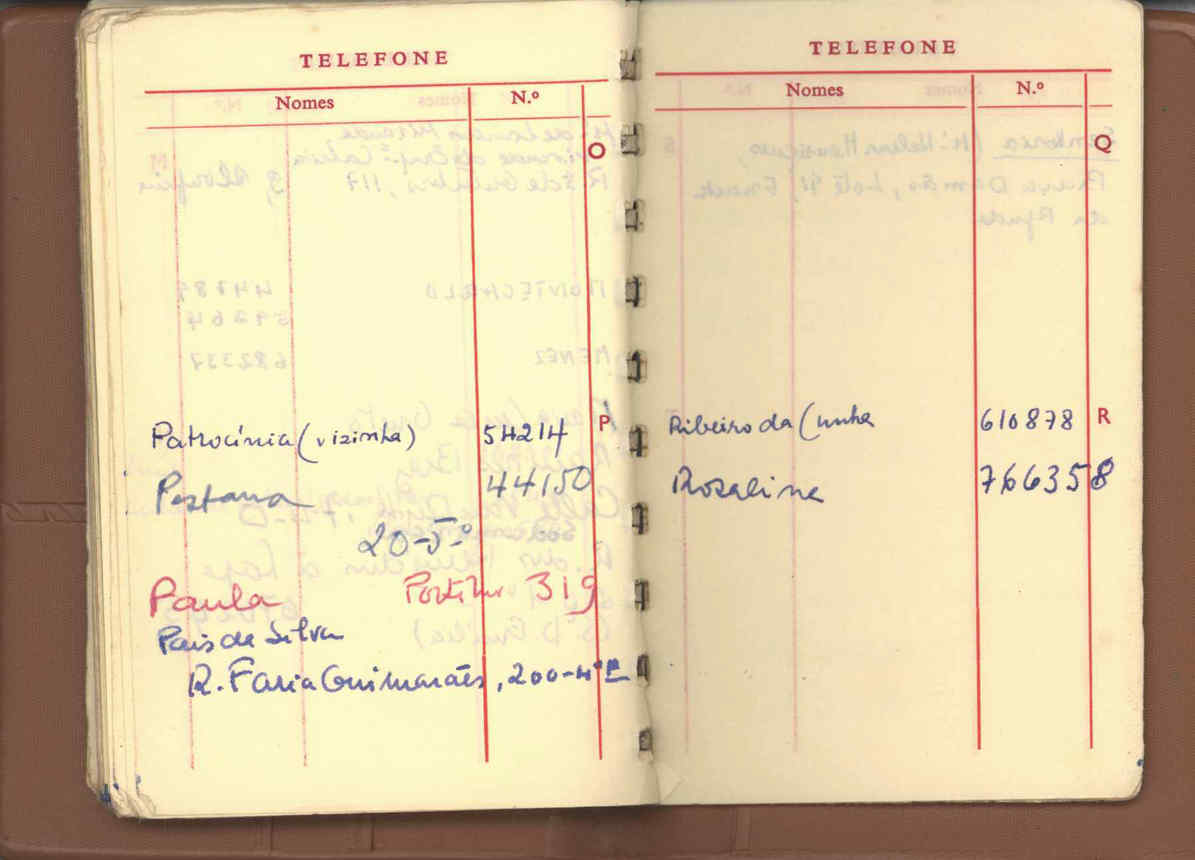 TELEFONE
Nomes N.º
O
Patrocínia (vizinha) 54214 P
Pestana 44150
20-5-º
Paula 319
Pais da Silva
R. Faria Guimarães, 200-4º
TELEFONE
Nomes N.º
Q
Ribeiro da Cunha 610878 R
Rosalina 766358